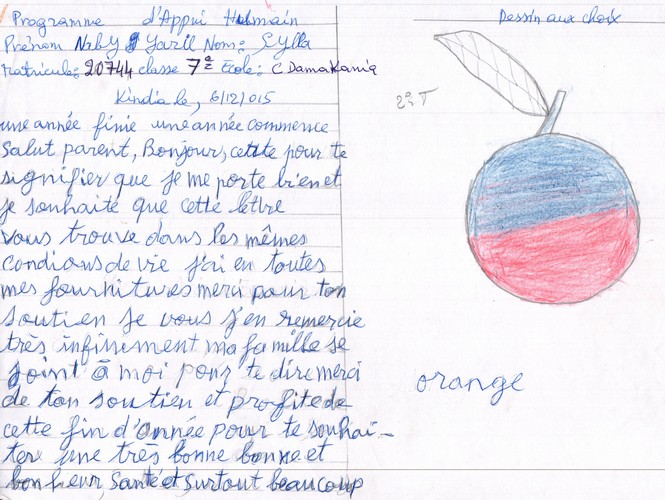 Programme d'Appui Hummain
Prénom Naby Yazil Nom: Sylla
Matricule: 20744 classe 7e Ecole: C Damakania
Kindia le, 6/12/015
une année finie une année commence
Salut parent, Bonjour, cette pour te
signifier que je me porte bien et
je souhaite que cette lettre
vous trouve dans les mêmes
condions de vie j'ai en toutes
mes fournitures merci pour ton
soutien je vous j'en remercie
très infiniment ma famille se
joint à moi pour te dire merci
de ton soutien et profite de
cette fin d'année pour te souhai-
ter une très bonne bonne et
bonheur Santé et surtout beaucoup
Dessin aux choix
orange